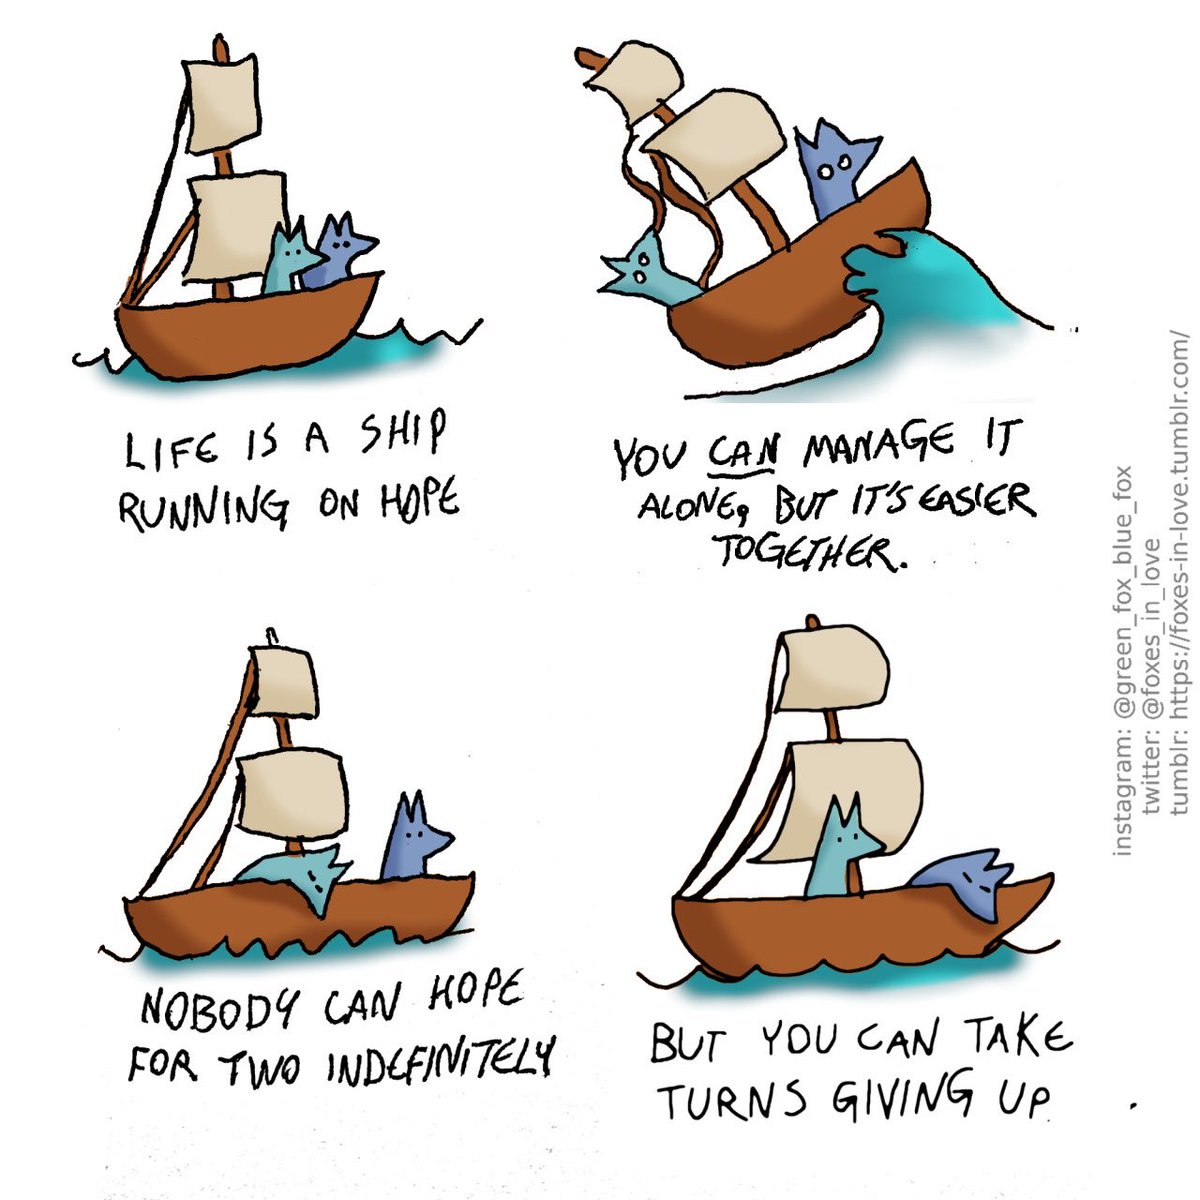 LIFE IS A SHIP
RUNNING ON HOPE
YOU CAN MANAGE IT
ALONE, BUT IT'S EASIER
TOGETHER.
NOBODY CAN HOPE
FOR TWO INDEFINITELY
BUT YOU CAN TAKE
TURNS GIVING UP.
instagram: @green_fox_blue_fox
twitter: @foxes_in_love
tumblr: https://foxes-in-love.tumblr.com/